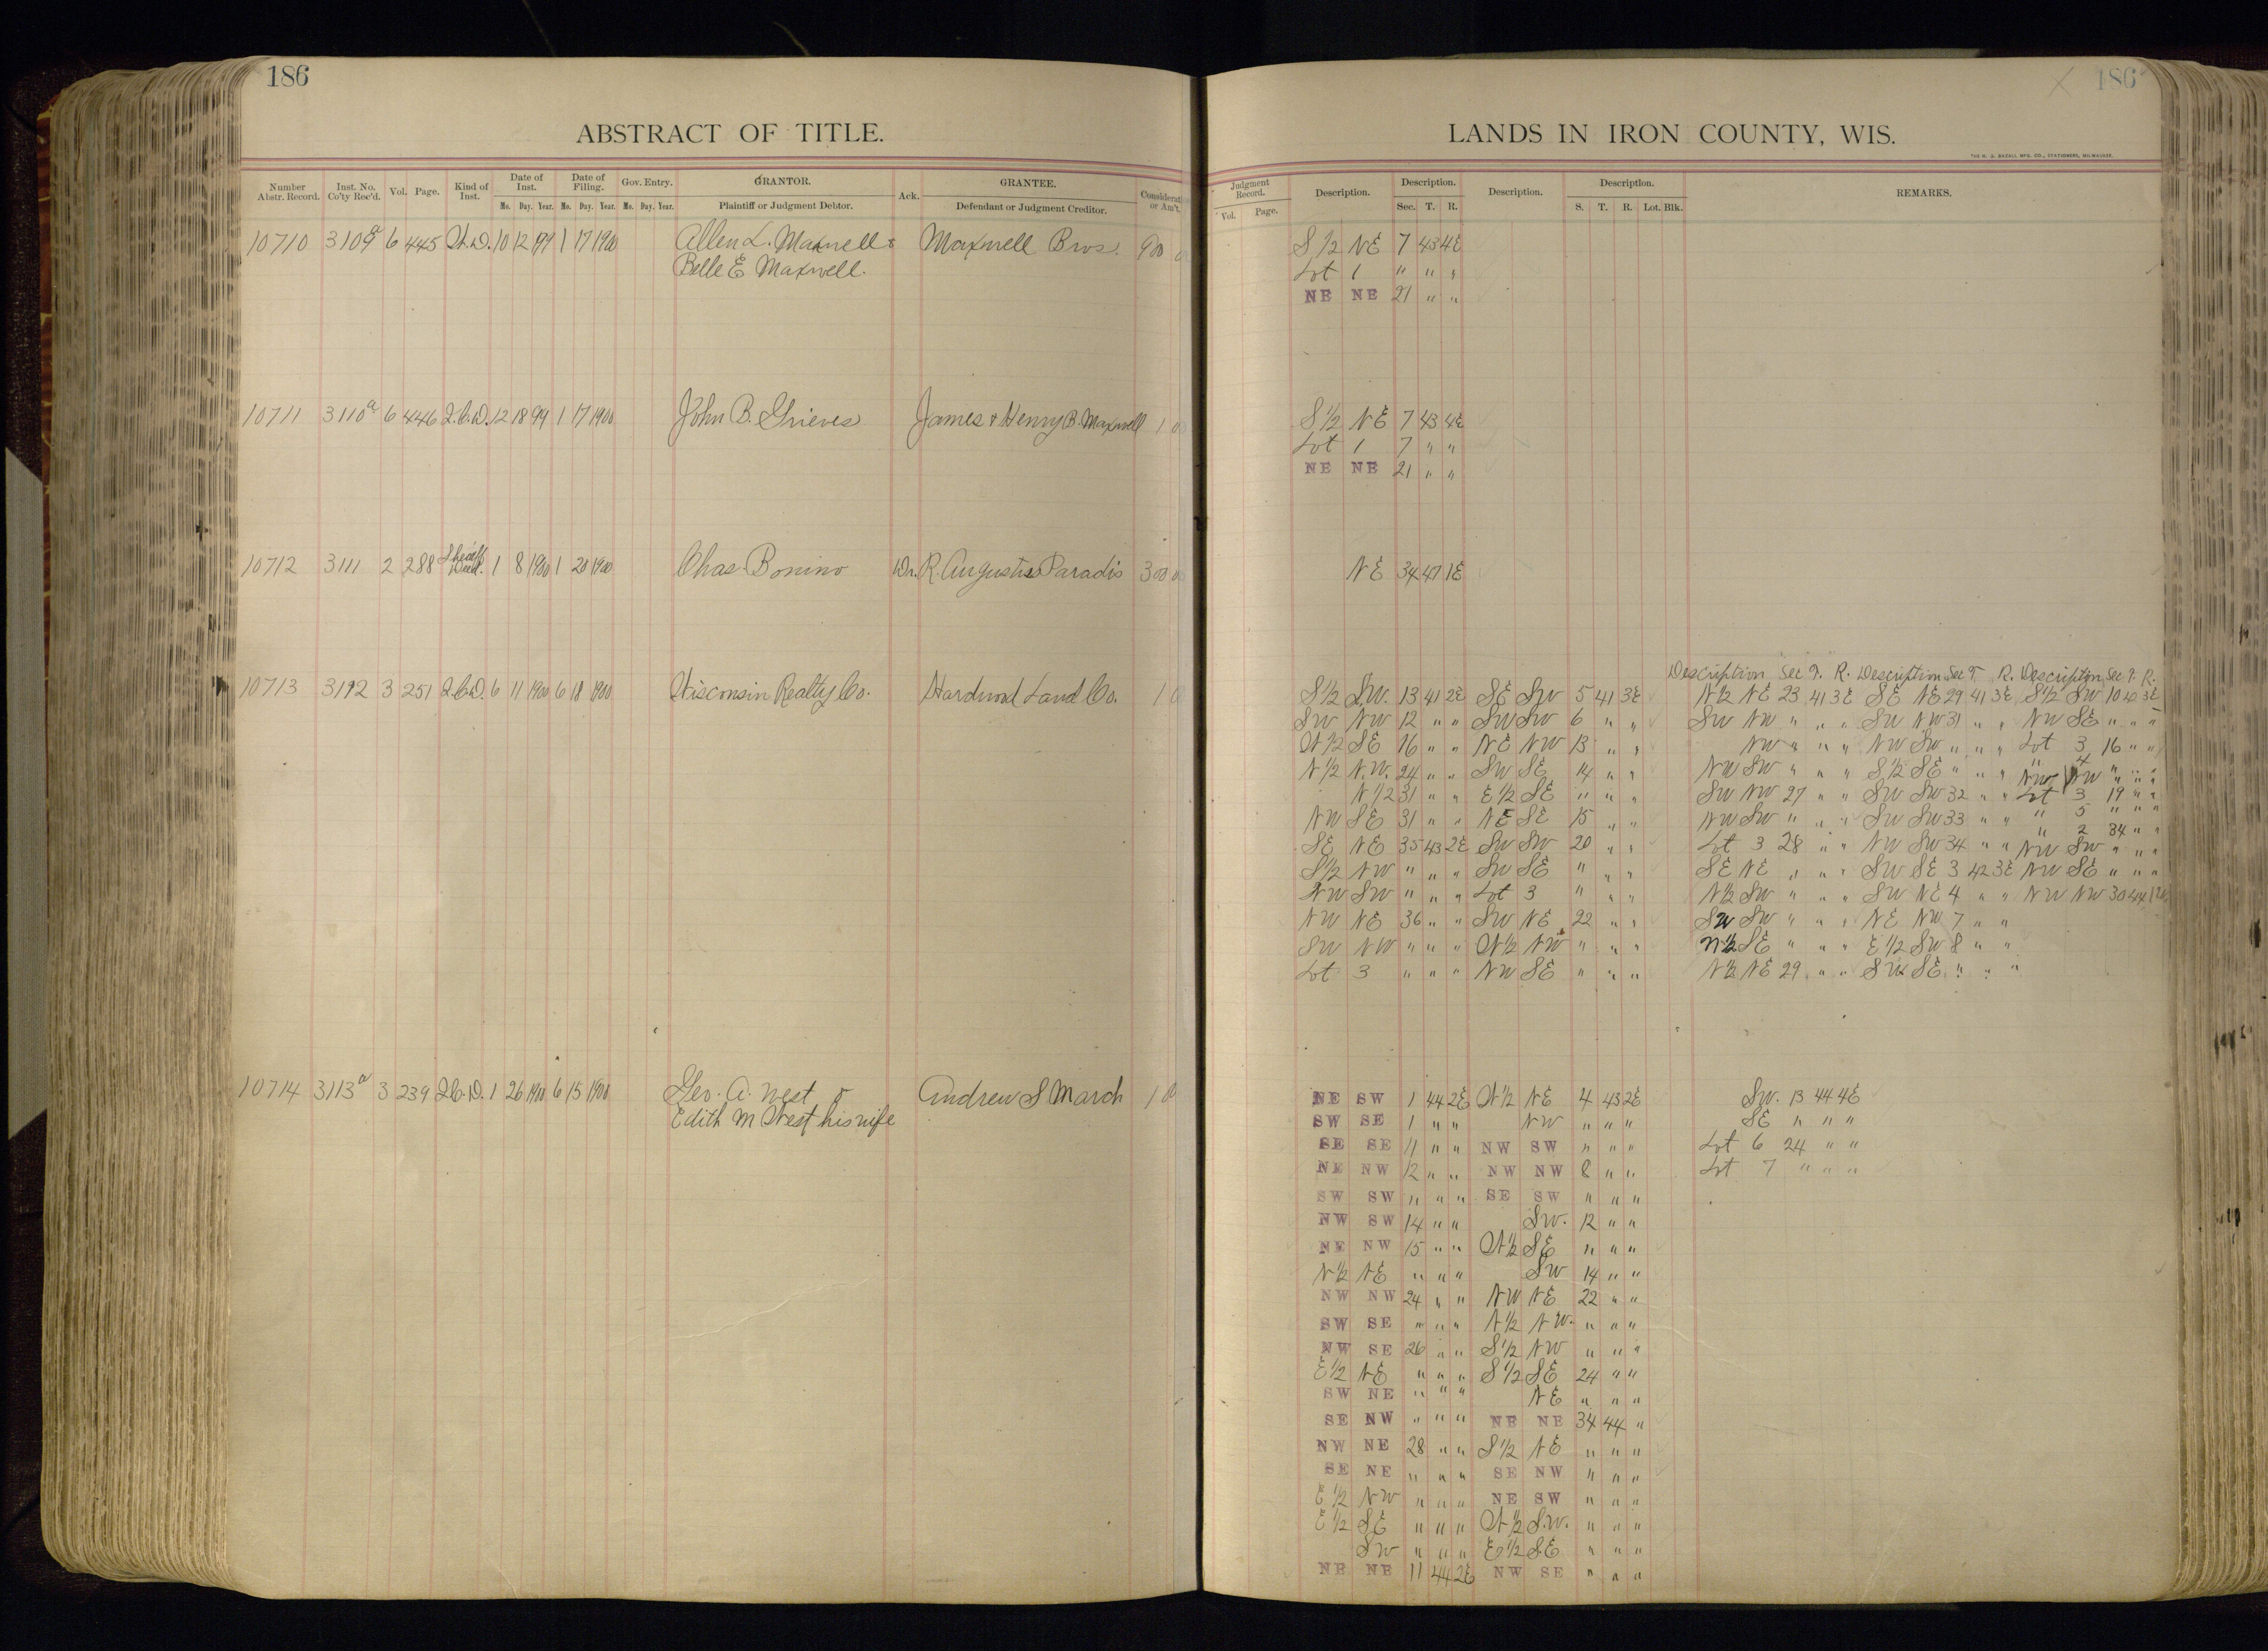 186
ABSTRACT OF TITLE.
Number Abstr. Record. Inst. No. Co'ty Rec'd. Vol. Page. Kind of Inst. Date of Inst. Date of Filing. Gov. Entry. GRANTOR. Ack. GRANTEE. Considerati or Am't.
Mo. Day. Year. Mo. Day. Year. Mo. Day. Year. Plaintiff or Judgment Debtor. Defendant or Judgment Creditor.
10710 3109a 6 445 W.D. 10 12 99 1 17 1900 Allen L. Maxwell & Maxwell Bros. 900
Belle E Maxwell.
10711 3110a 6 446 Q.C.D. 12 18 99 1 17 1900 John B. Grieves James & Henry B. Maxwell 1 00
10712 3111 2 288 Sheriff Deed. 1 8 1900 1 20 1900 Chas. Bonino Dr. R. Augustus Paradis 300 00
10713 3112 3 251 Q.C.D. 6 11 1900 6 18 1900 Wisconsin Realty Co. Hardwood Land Co. 1 0
10714 3113a 3 239 Q.C.D. 1 26 1900 6 15 1900 Geo. A. West & Andrew S March 1 00
Edith M West his wife
186
LANDS IN IRON COUNTY, WIS.
Judgment Record. Description. Description. Description. Description. REMARKS.
Vol. Page. Sec. T. R. S. T. R. Lot. Blk.
S 1/2 NE 7 43 4E
Lot 1 " " "
NE NE 21 " "
S 1/2 NE 7 43 4E
Lot 1 7 " "
NE NE 21 " "
NE 34 47 1E
Description Sec T. R. Description Sec T R. Description Sec T. R.
S 1/2 S.W. 13 41 2E SE SW 5 41 3E N 1/2 NE 23 41 3E SE NE 29 41 3E S 1/2 SW 10 42 3E
SW NW 12 " " SW SW 6 " " SW NW " " " SW NW 31 " " NW SE " " "
W 1/2 SE 16 " " NE NW 13 " " NW " " " NW SW " " " Lot 3 16 " "
N 1/2 N.W. 24 " " SW SE 14 " " NW SW " " " S 1/2 SE " " " " 4 " " "
NW NW " " "
N 1/2 31 " " E 1/2 SE " " " SW NW 27 " " SW SW 32 " " Lot 3 19 " "
NW SE 31 " " NE SE 15 " " NW SW " " " SW SW 33 " " " 5 " " "
" 2 34 " "
SE NE 35 43 2E SW SW 20 " " Lot 3 28 " " NW SW 34 " " NW SW " " "
S 1/2 NW " " " SW SE " " " SE NE " " " SW SE 3 42 3E NW SE " " "
NW SW " " " Lot 3 " " " N 1/2 SW " " " SW NE 4 " " NW NW 30 44
NW NE 36 " " SW NE 22 " " SW SW " " " NE NW 7 " "
SW NW " " " W 1/2 NW " " " N 1/2 SE " " " E 1/2 SW 8 " "
Lot 3 " " " NW SE " " " N 1/2 NE 29 " " SW SE " " "
NE SW 1 44 2E W 1/2 NE 4 43 2E SW. 13 44 4E
SW SE 1 " " NW " " " SE " " "
SE SE 11 " " NW SW " " " Lot 6 24 " "
NE NW 12 " " NW NW 8 " " Lot 7 " " "
SW SW " " " SE SW " " "
NW SW 14 " " SW. 12 " "
NE NW 15 " " W 1/2 SE " " "
N 1/2 NE " " " SW 14 " "
NW NW 24 " " NW NE 22 " "
SW SE " " " N 1/2 NW. " " "
NW SE 26 " " S 1/2 NW " " "
E 1/2 NE " " " S 1/2 SE 24 " "
SW NE " " " NE " " "
SE NW " " " NE NE 34 44 "
NW NE 28 " " S 1/2 NE " " "
SE NE " " " SE NW " " "
E 1/2 NW " " " NE SW " " "
E 1/2 SE " " " W 1/2 S.W. " " "
SW " " " E 1/2 SE " " "
NE NE 11 44 2E NW SE " " "